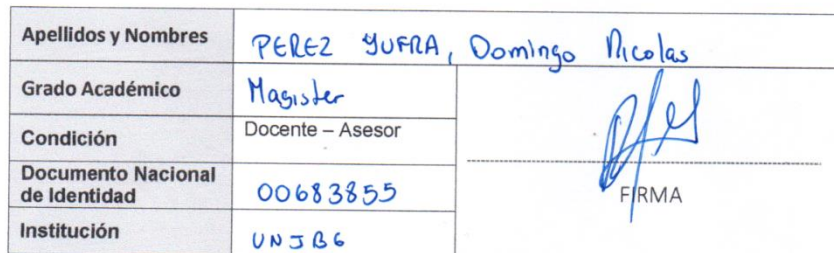 Apellidos y Nombres PEREZ YUFRA, Domingo Nicolas
Grado Académico Magister
Condición Docente – Asesor
Documento Nacional
de Identidad 00683855
FIRMA
Institución UNJBG